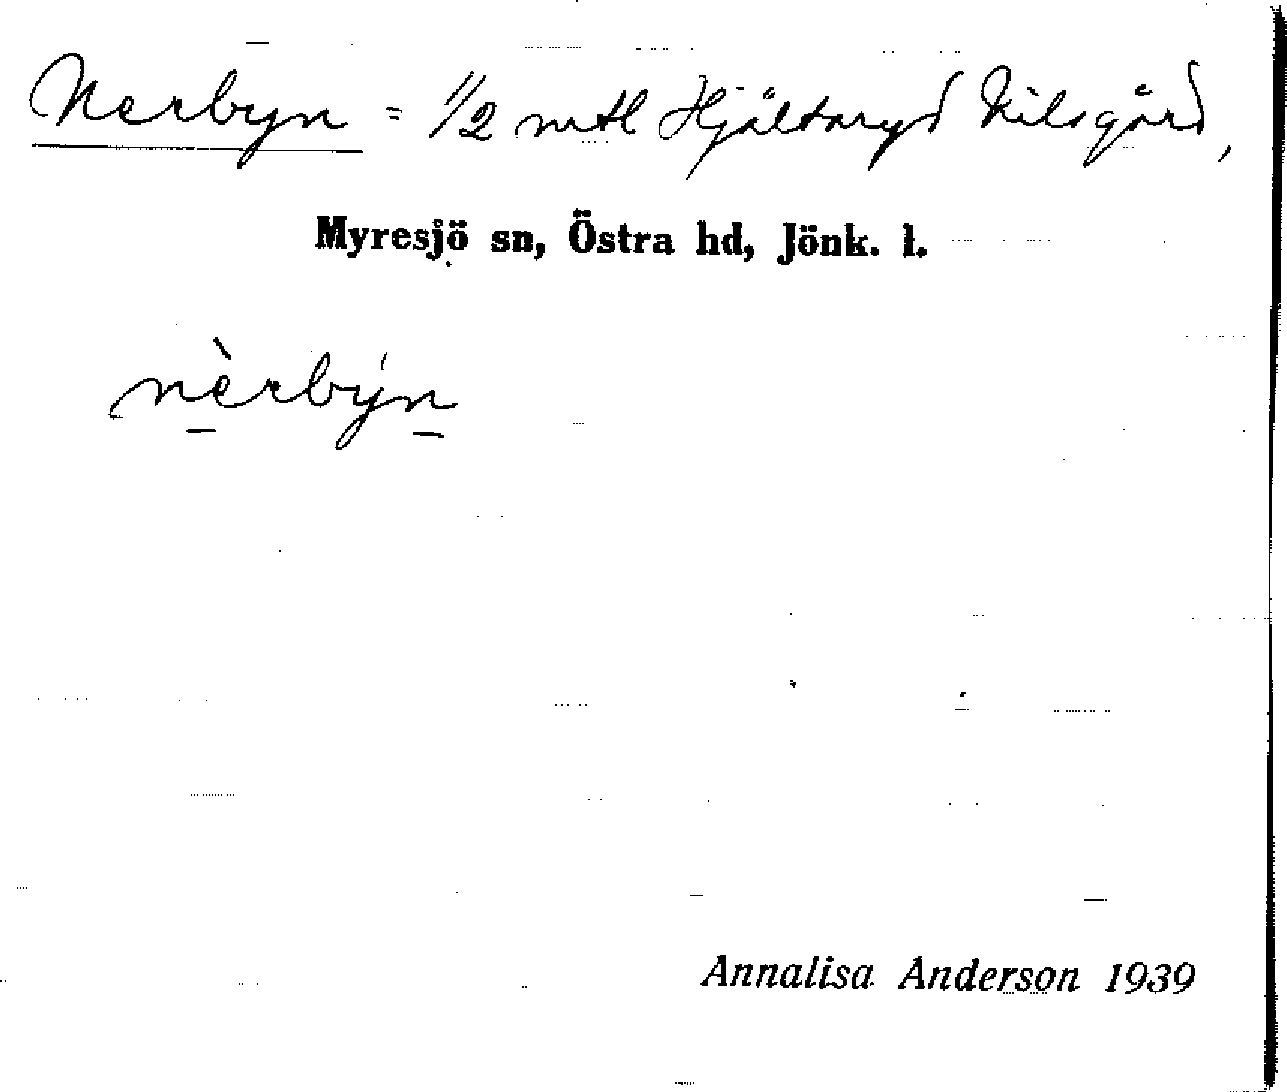 Nerbyn = 1/2 mtl Hjältaryd Nilsgård,
Myresjö sn, Östra hd, Jönk. l.
nè̱rbýṉ
Annalisa Anderson 1939